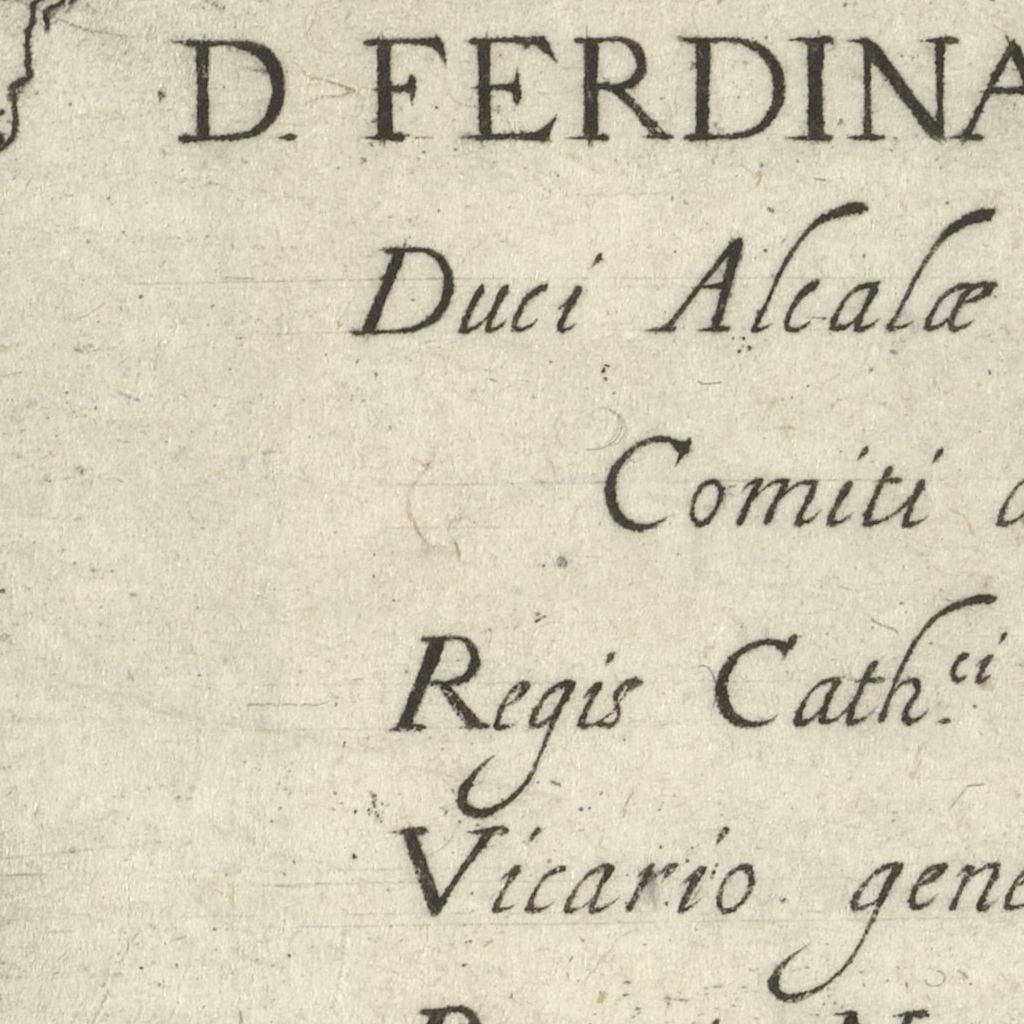 D. FERDINA
Duci Alcalæ
Comiti
Regis Cath.ci
Vicario gene